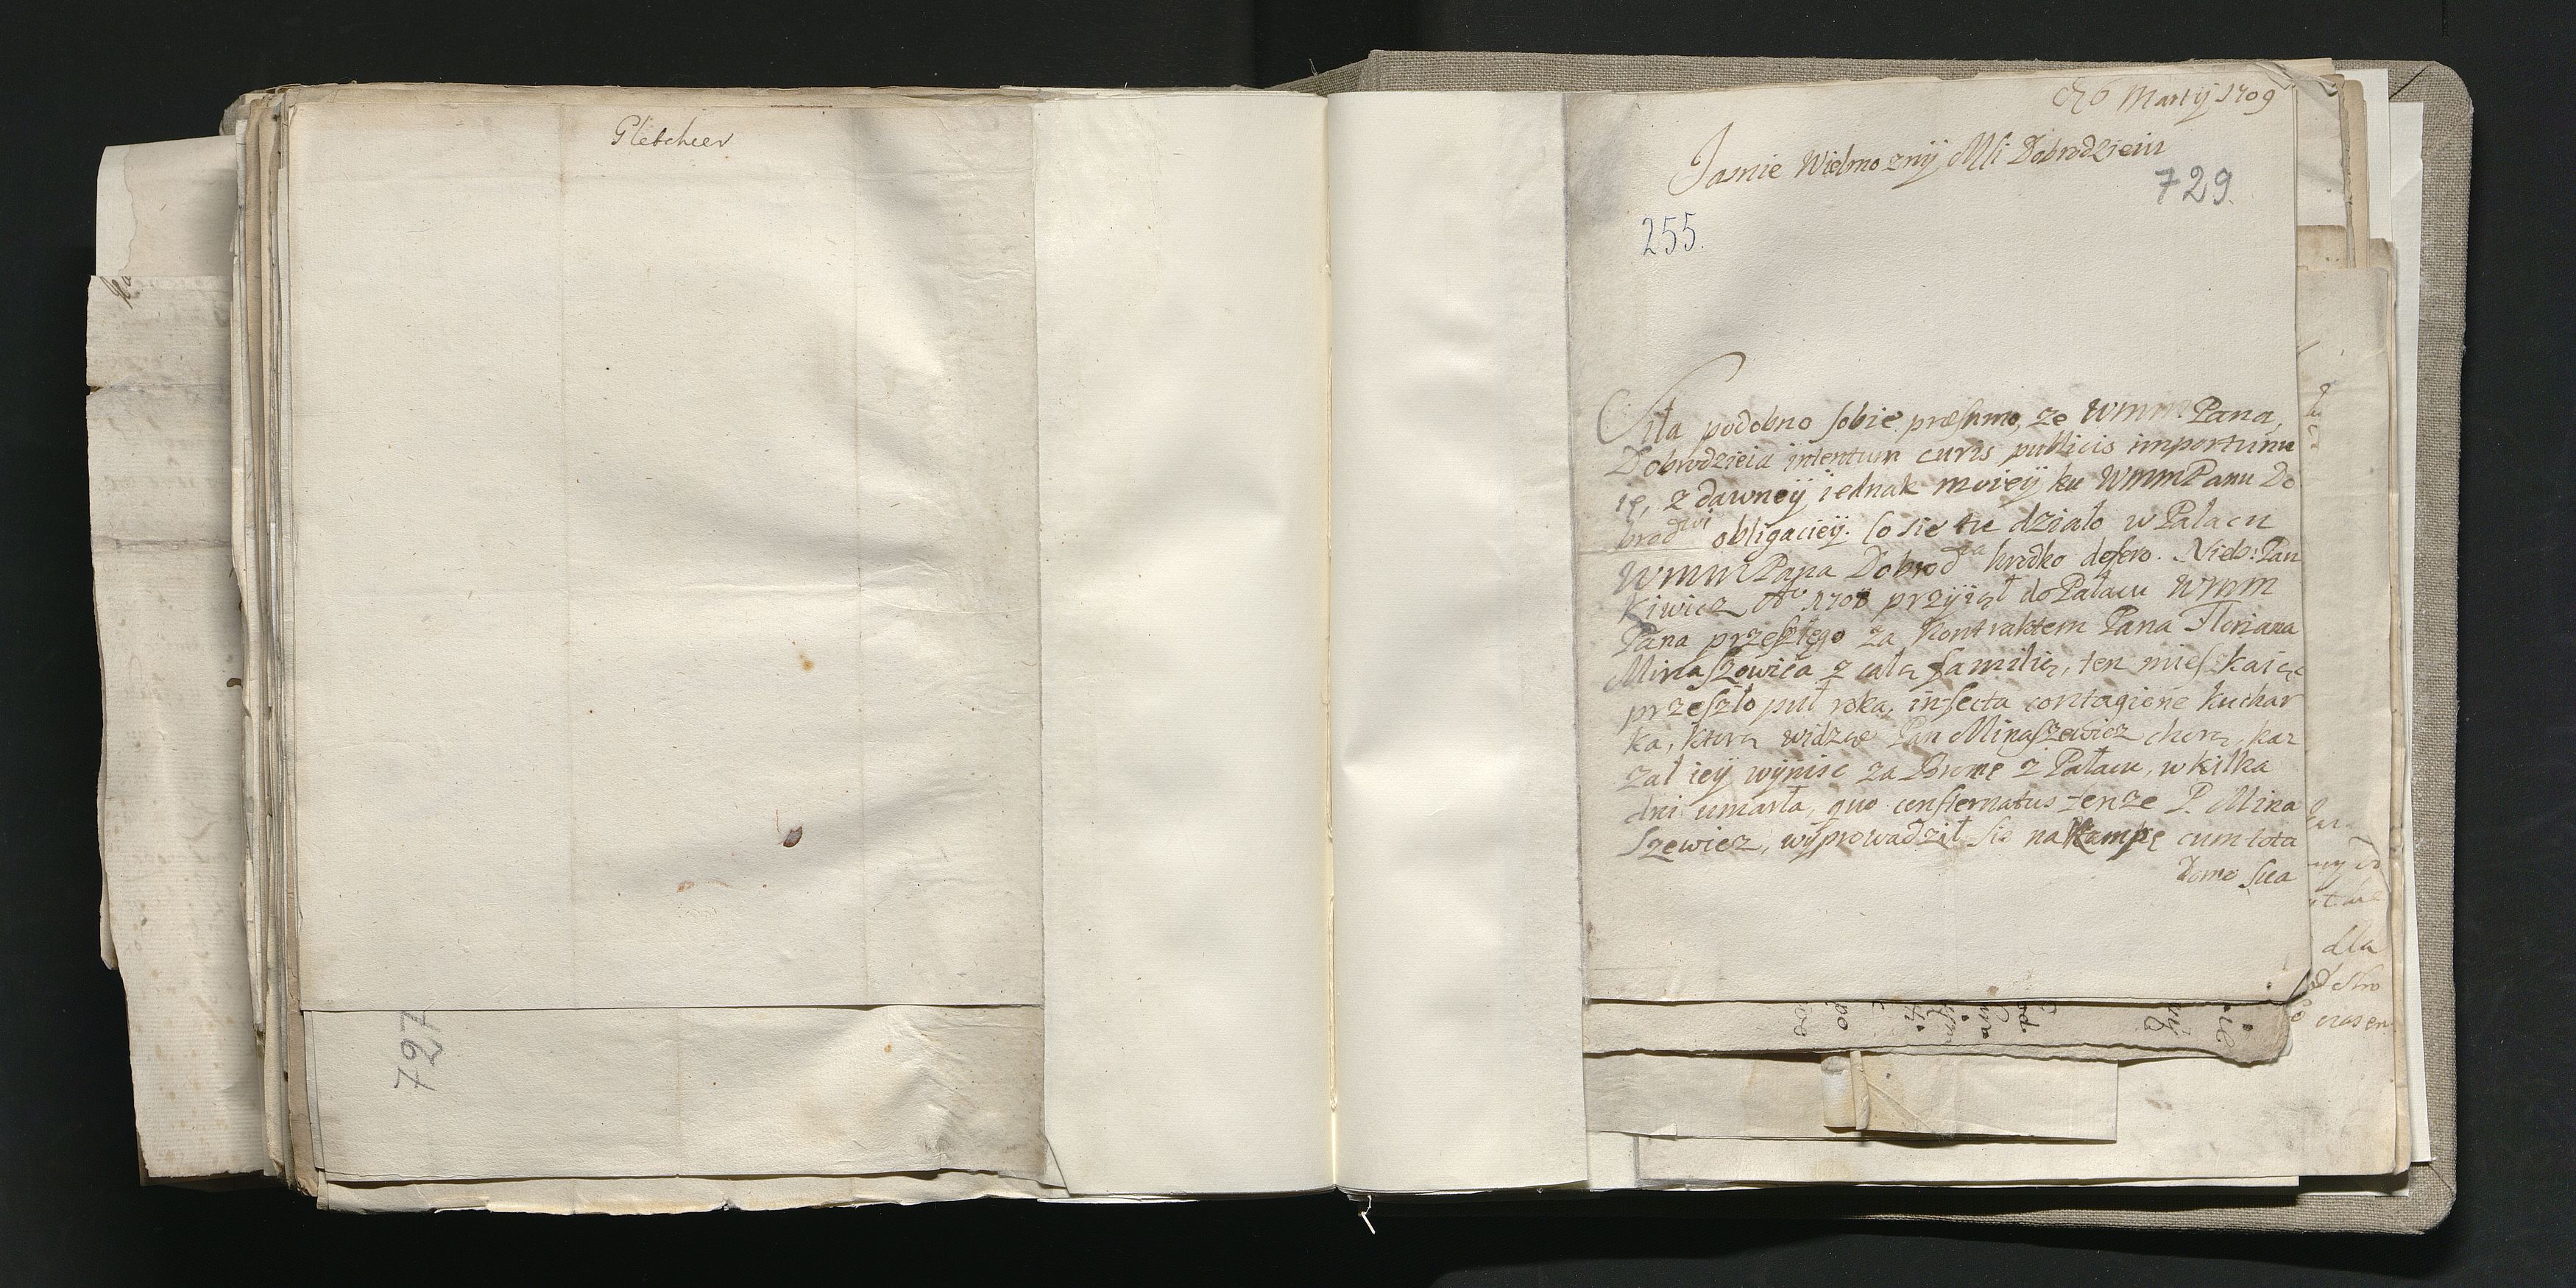 Gletcheer
727
6 Martij 1709
Jasnie Wielmoznÿ Mſi Dobrodzieiu
729.
255.
Siła podobno ſobie præſumo, ze WMM Pana,
Dobrodzieia intentum curis publicis importunu
ię, z dawneÿ iednak moieÿ ku WMMPanu Do
brodwi obligacieÿ. Co sie tu działo w Pałacu
WMMPana Dobrodza krodko defero. Nieb: Pan
Kiwicz Ao 1708 przÿiął do Pałacu WMM
Pana przeſzłego za Kontraktem Pana Floriana
Minaſzowica z całą familią, ten mieſzkaiąc
przeſzło puł roka, infecta contagione kuchar
ka, ktorą widząc Pan Minaſzewicz chorą, kaz
zał ieÿ wÿnisc za Bronę z Pałacu, w kilka
dni umarła, quo conſternatus tenze P. Mina
ſzewicz, wÿprowadził ſie na Kampę cum tota
domo ſua
dla